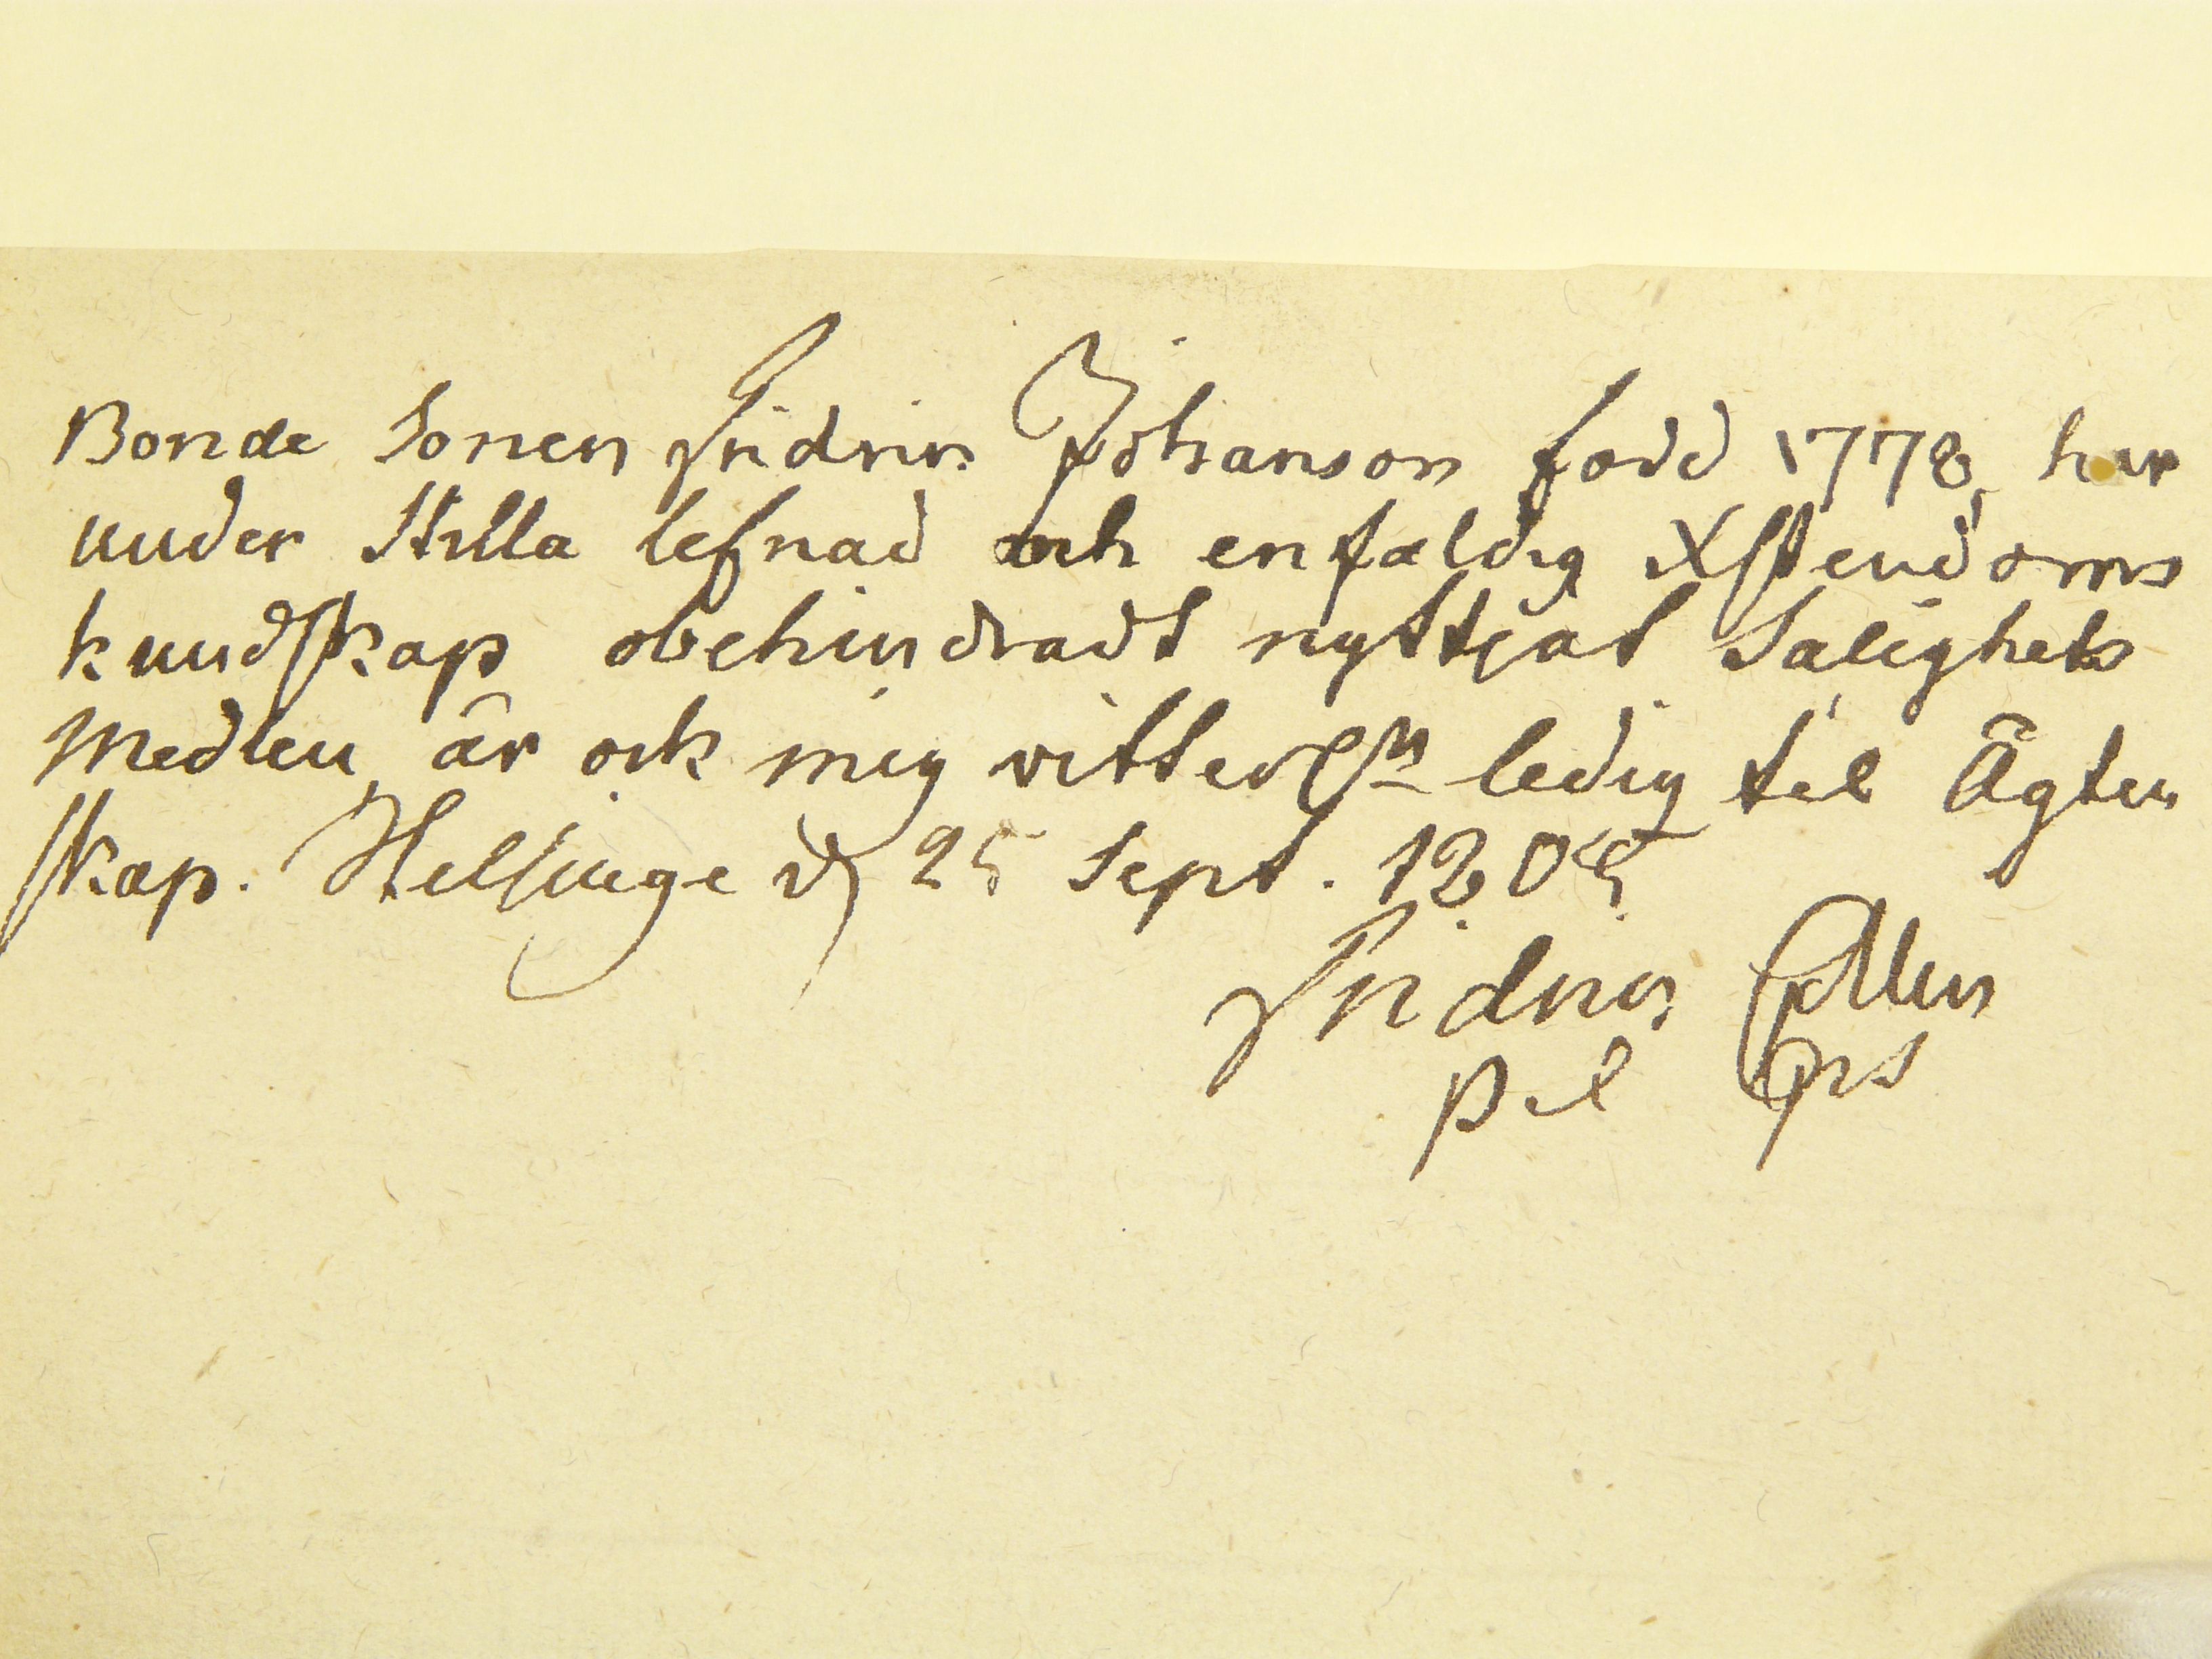 Bonde Sonen Fridric Johanson fodd 1778, har
under Stilla lefnad och enfaldig Xstendoms
kundskap obehindradt nyttjat Salighets
Medlen, är ock mig vitterl:n ledig til Ägten
skap. Helsinge d 25 Sept. 1805
Fridric